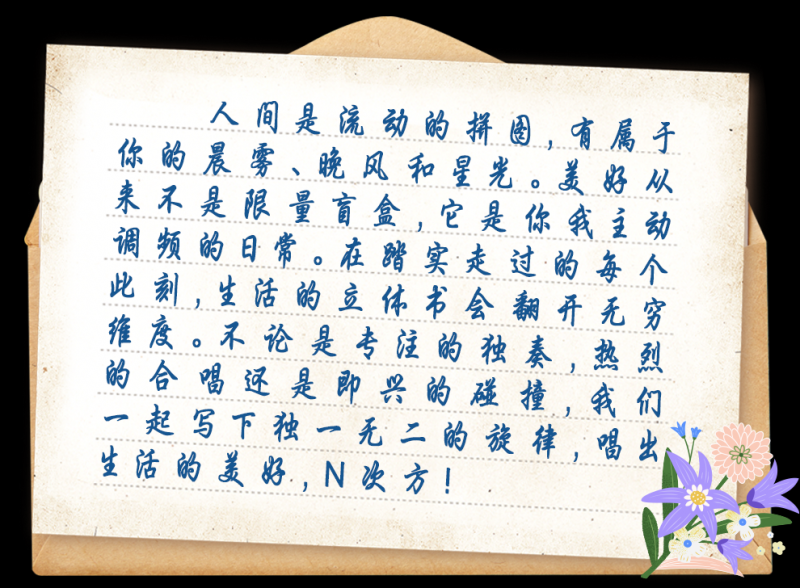 人间是流动的拼图,有属于
你的晨雾、晚风和星光。美好从
来不是限量盲盒,它是你我主动
调频的日常。在踏实走过的每个
此刻,生活的立体书会翻开无穷
维度。不论是专注的独奏,热烈
的合唱还是即兴的碰撞,我们
一起写下独一无二的旋律,唱出
生活的美好,N次方!